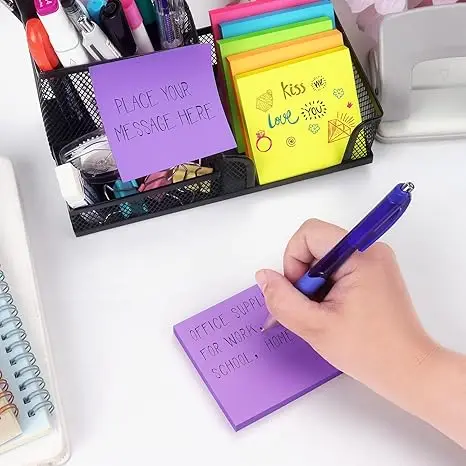 PLACE YOUR
MESSAGE HERE
Kiss ME
Love YOU
OFFICE SUPPL
FOR WORK,
SCHOOL, HOME